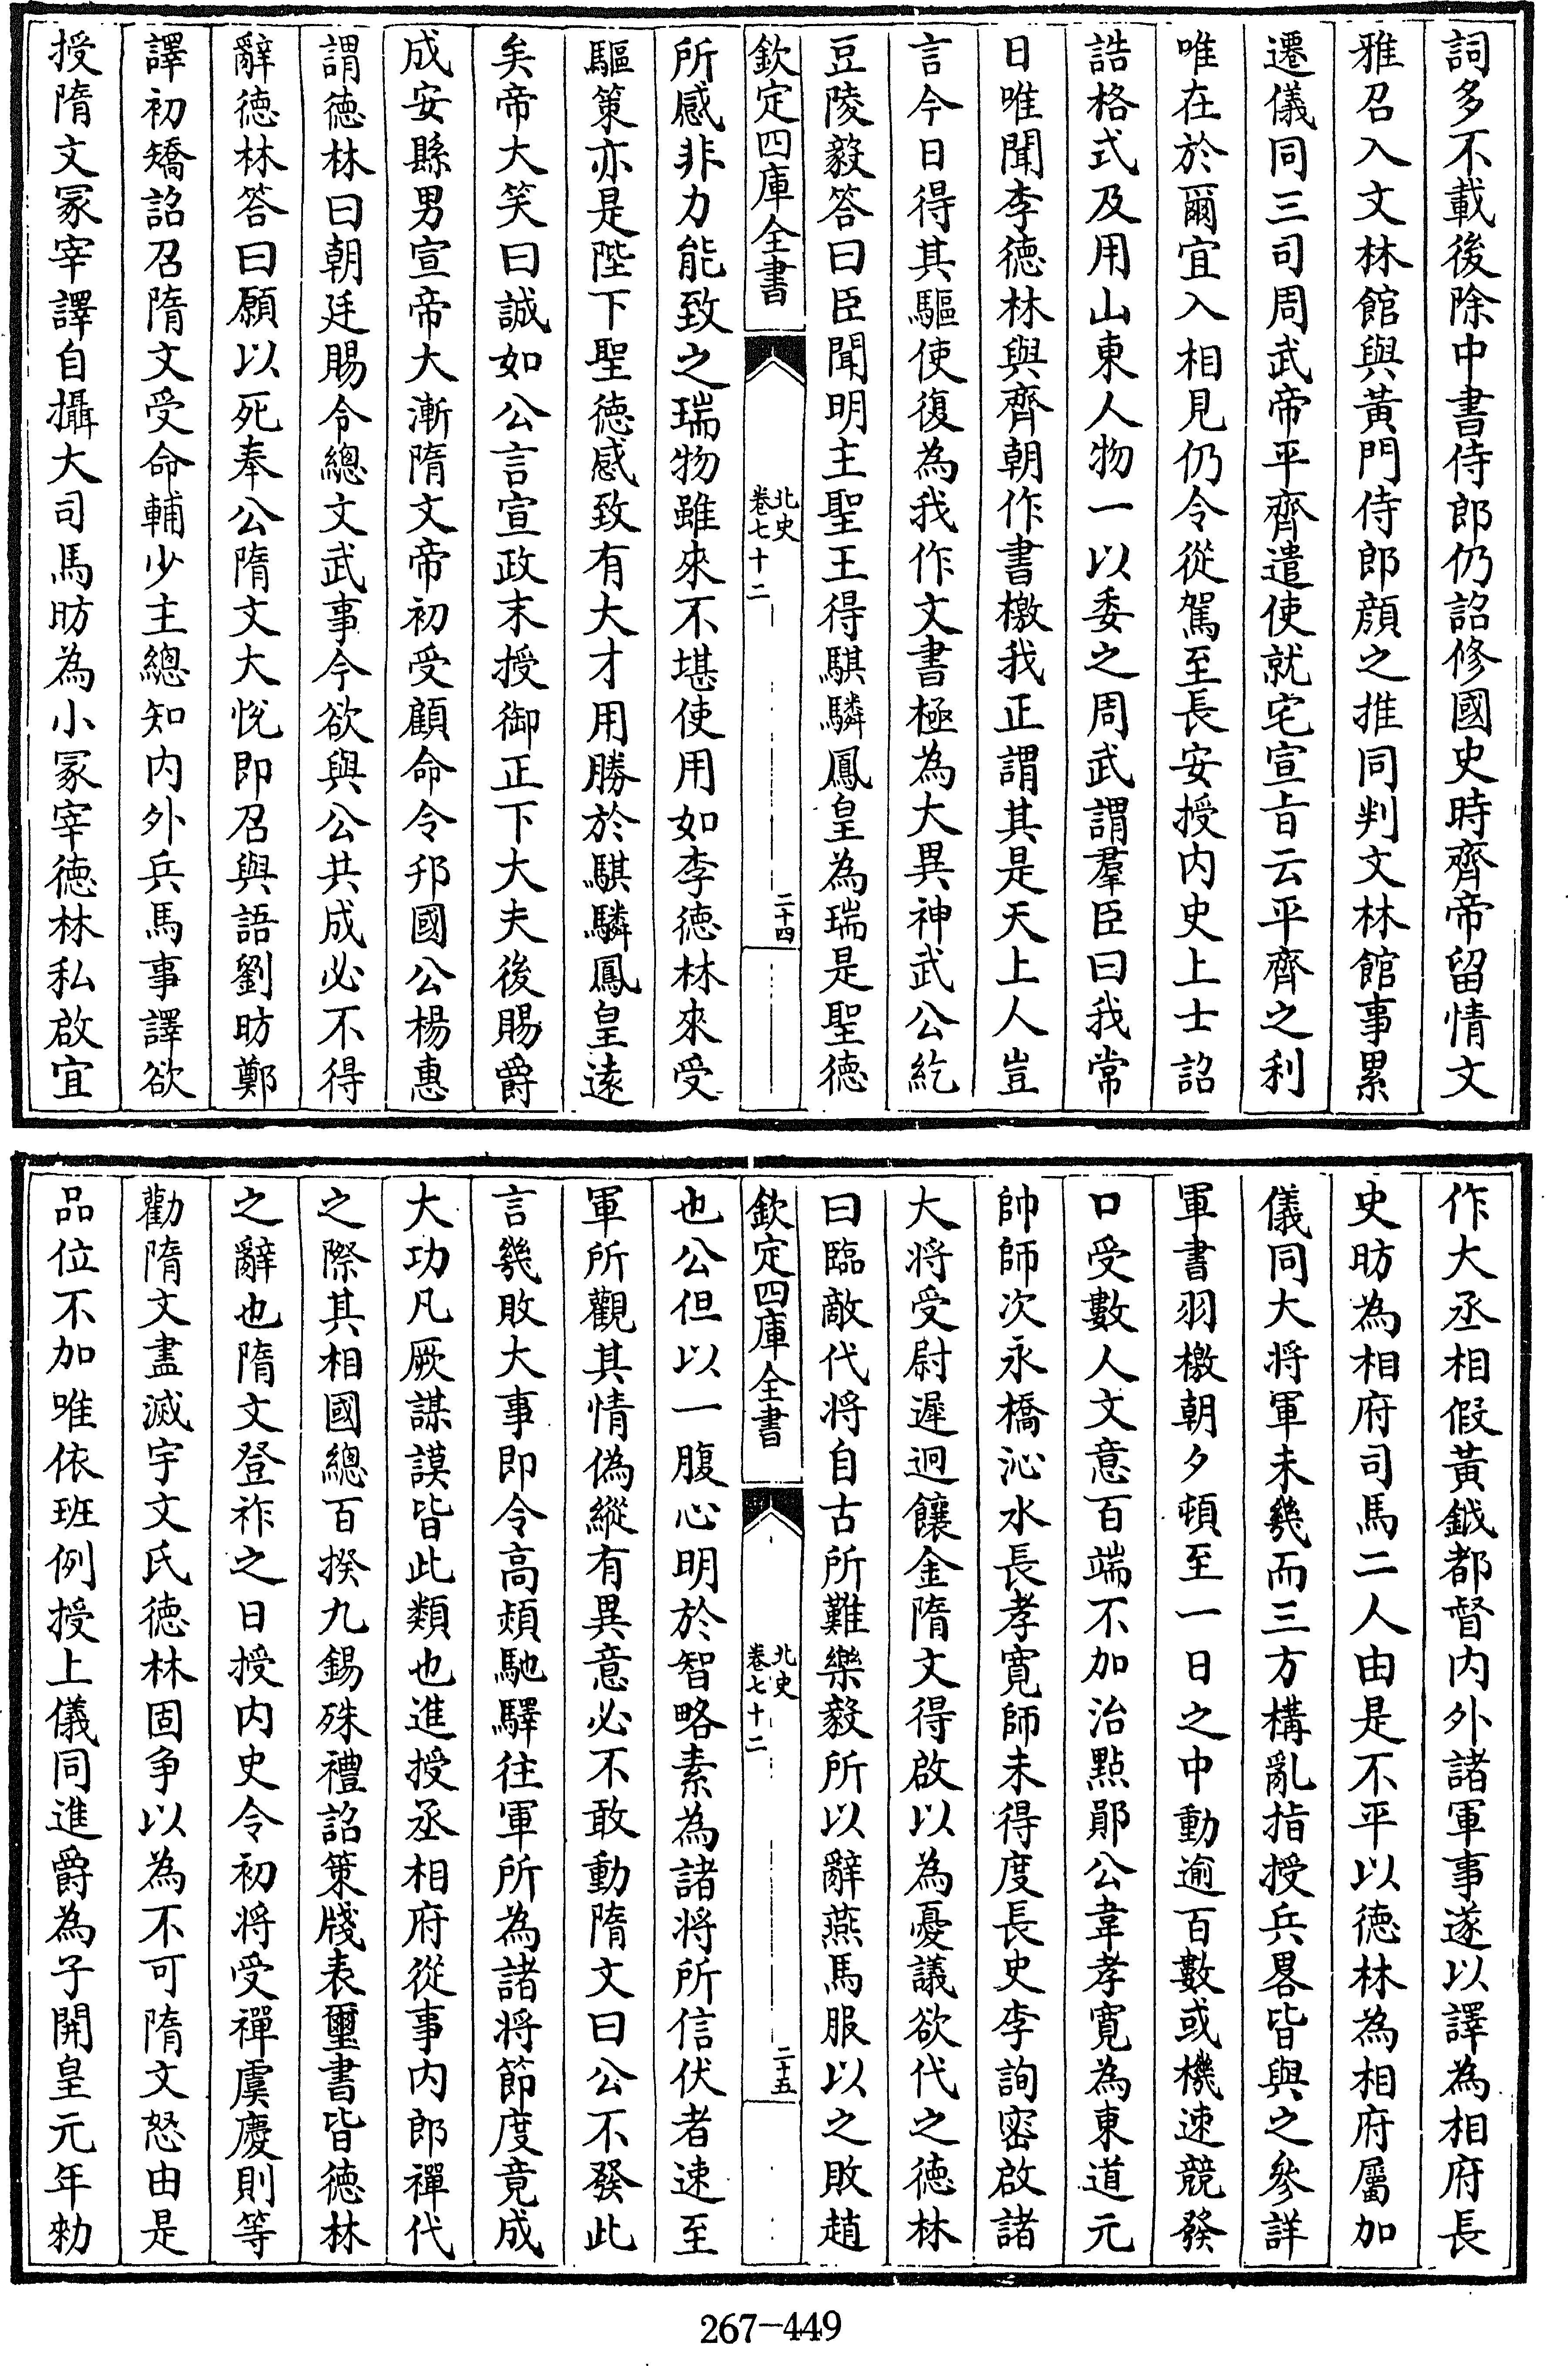 詞多不載後除中書侍郎仍詔修國史時齊帝留情文
雅召入文林館與黃門侍郎顔之推同判文林館事累
遷儀同三司周武帝平齊遣使就宅宣㫖云平齊之利
唯在於爾宜入相見仍令從駕至長安授内史上士詔
誥格式及用山東人物一以委之周武謂羣臣曰我常
日唯聞李徳林與齊朝作書檄我正謂其是天上人豈
言今日得其驅使復為我作文書極為大異神武公紇
豆陵毅答曰臣聞明主聖王得騏驎鳳皇為瑞是聖徳
欽定四庫全書
北史
卷七十二
二十四
所感非力能致之瑞物雖來不堪使用如李徳林來受
驅策亦是陛下聖徳感致有大才用勝於騏驎鳳皇逺
矣帝大笑曰誠如公言宣政末授御正下大夫後賜爵
成安縣男宣帝大漸隋文帝初受顧命令邗國公楊惠
謂徳林曰朝廷賜令總文武事今欲與公共成必不得
辭徳林答曰願以死奉公隋文大恱即召與語劉昉鄭
譯初矯詔召隋文受命輔少主總知内外兵馬事譯欲
授隋文冢宰譯自攝大司馬昉為小冢宰徳林私啟宜
作大丞相假黃鉞都督内外諸軍事遂以譯為相府長
史昉為相府司馬二人由是不平以徳林為相府屬加
儀同大将軍未㡬而三方構亂指授兵畧皆與之參詳
軍書羽檄朝夕頓至一日之中動逾百數或機速競發
口受數人文意百端不加治點鄖公韋孝寛為東道元
帥師次永橋沁水長孝寛師未得度長史李詢密啟諸
大将受尉遲迥饟金隋文得啟以為憂議欲代之徳林
曰臨敵代将自古所難樂毅所以辭燕馬服以之敗趙
欽定四庫全書
北史
卷七十二
二十五
也公但以一腹心明於智略素為諸将所信伏者速至
軍所觀其情偽縱有異意必不敢動隋文曰公不發此
言㡬敗大事即令高熲馳驛往軍所為諸将節度竟成
大功凡厥謀謨皆此類也進授丞相府從事内郎禪代
之際其相國總百揆九錫殊禮詔策牋表璽書皆徳林
之辭也隋文登祚之日授内史令初将受禪虞慶則等
勸隋文盡滅宇文氏徳林固争以為不可隋文怒由是
品位不加唯依班例授上儀同進爵為子開皇元年勅
267-449